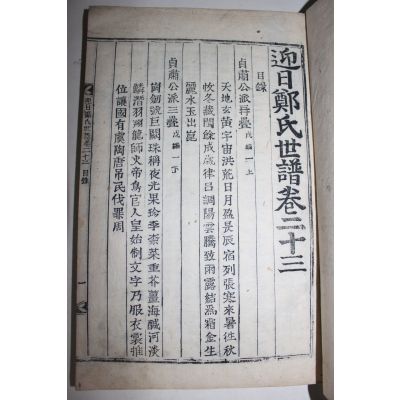 迎日鄭氏世譜卷二十三
目錄
貞肅公派再疊 戊編一上
天地玄黃宇宙洪荒日月盈昃辰宿列張寒來暑往秋
收冬藏閏餘成歲律呂調陽雲騰致雨露結爲霜金生
麗水玉出崑
貞肅公派三疊 戊編一下
崗劒號巨闕珠稱夜光果珍李柰菜重芥薑海鹹河淡
鱗潛羽翔龍師火帝鳥官人皇始制文字乃服衣裳推
位讓國有虞陶唐吊民伐罪周
迎日鄭氏世譜卷二十三 目錄
一